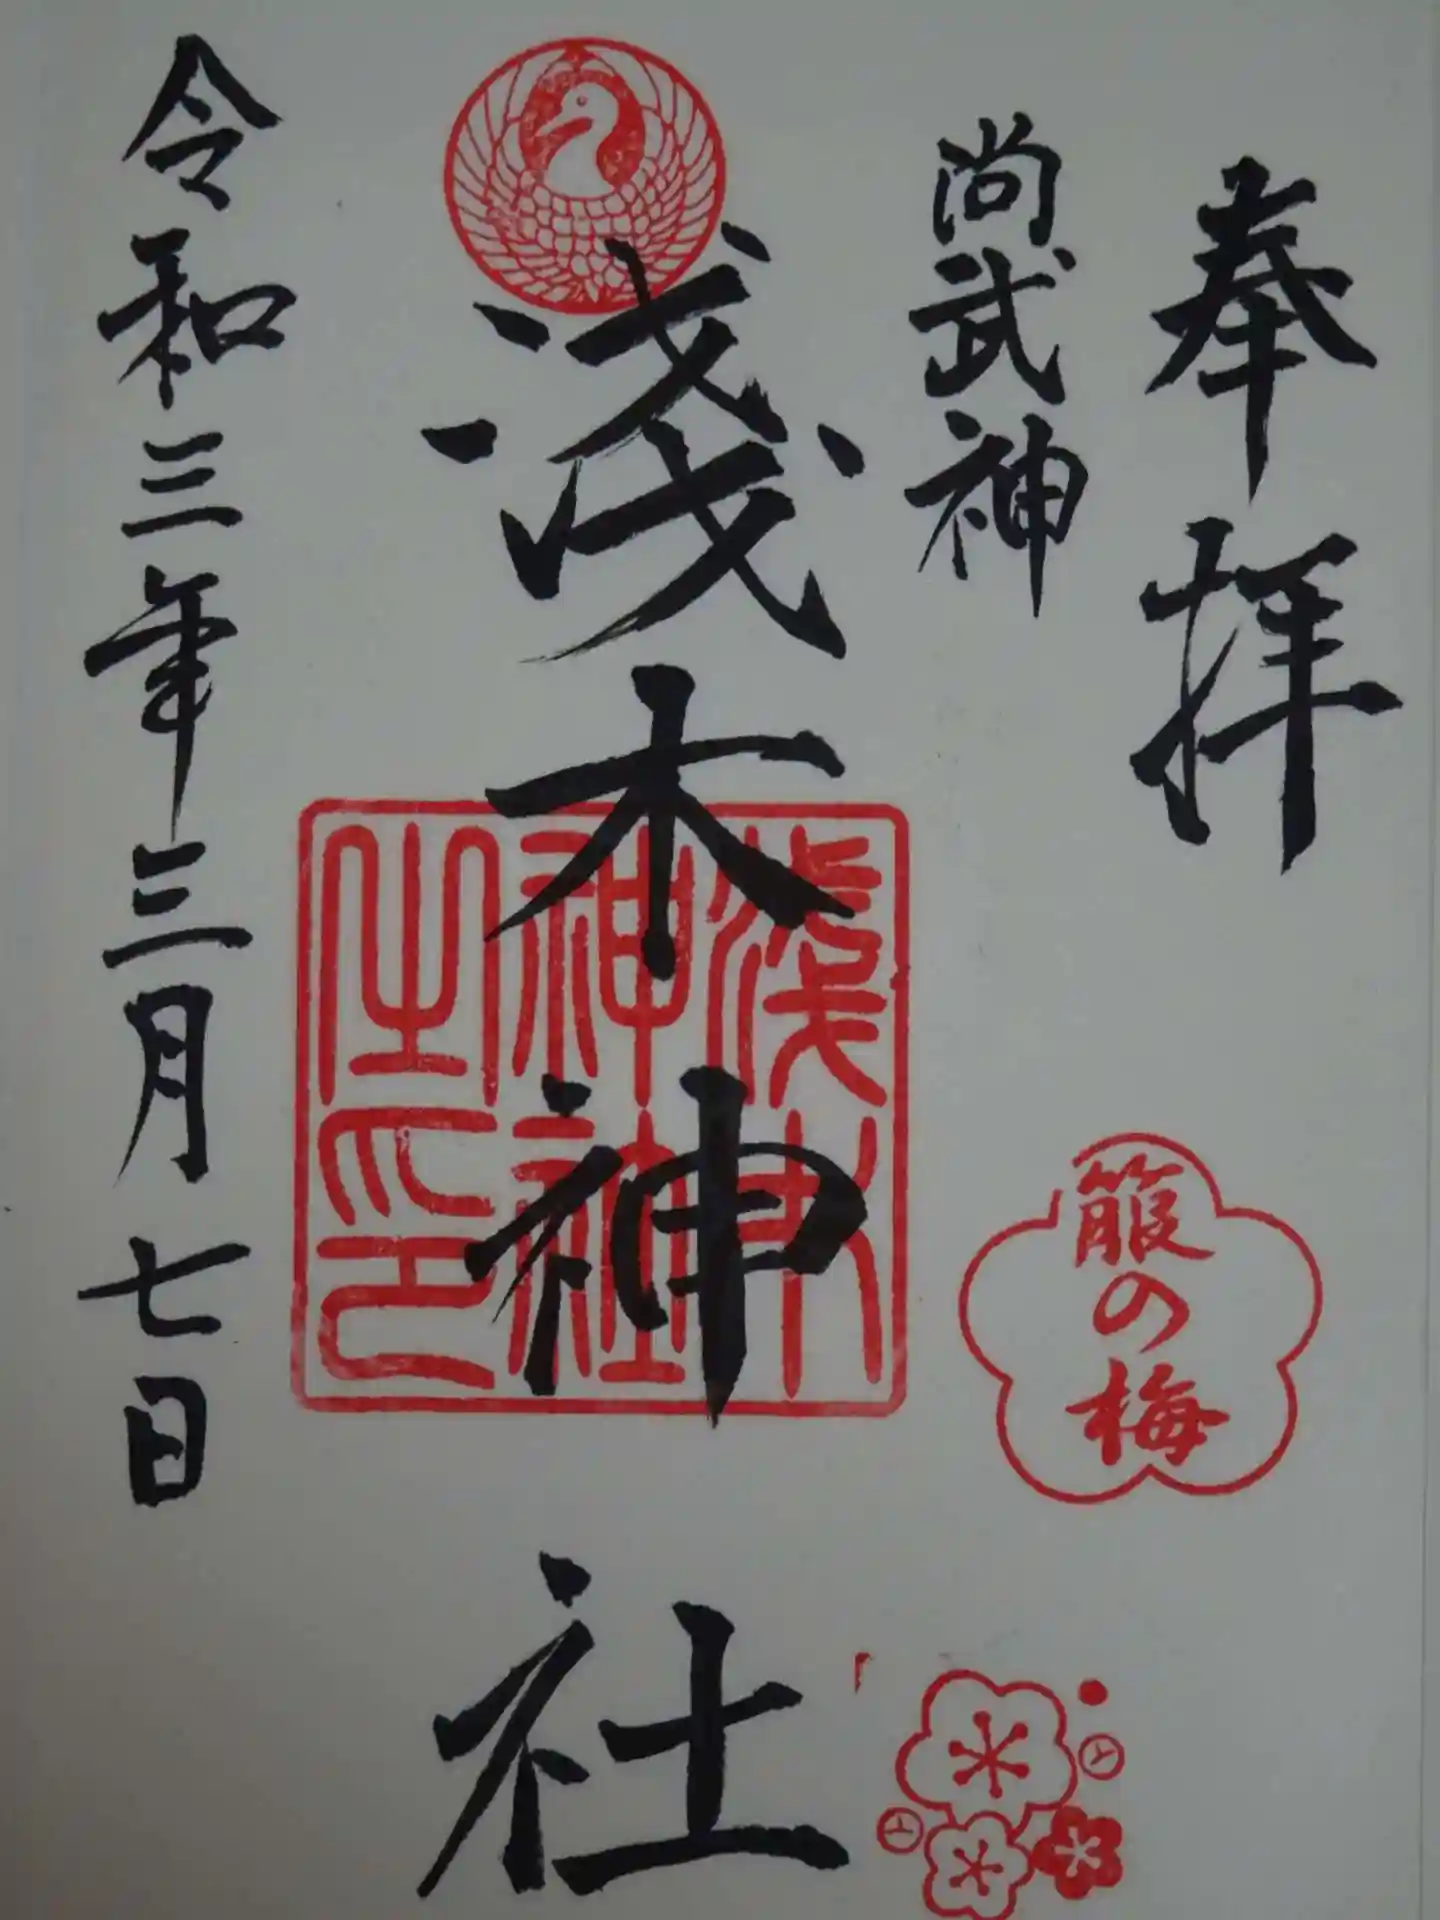 奉拝
尚武神
淺木神社
淺木神社之印
箙の梅
令和三年三月七日